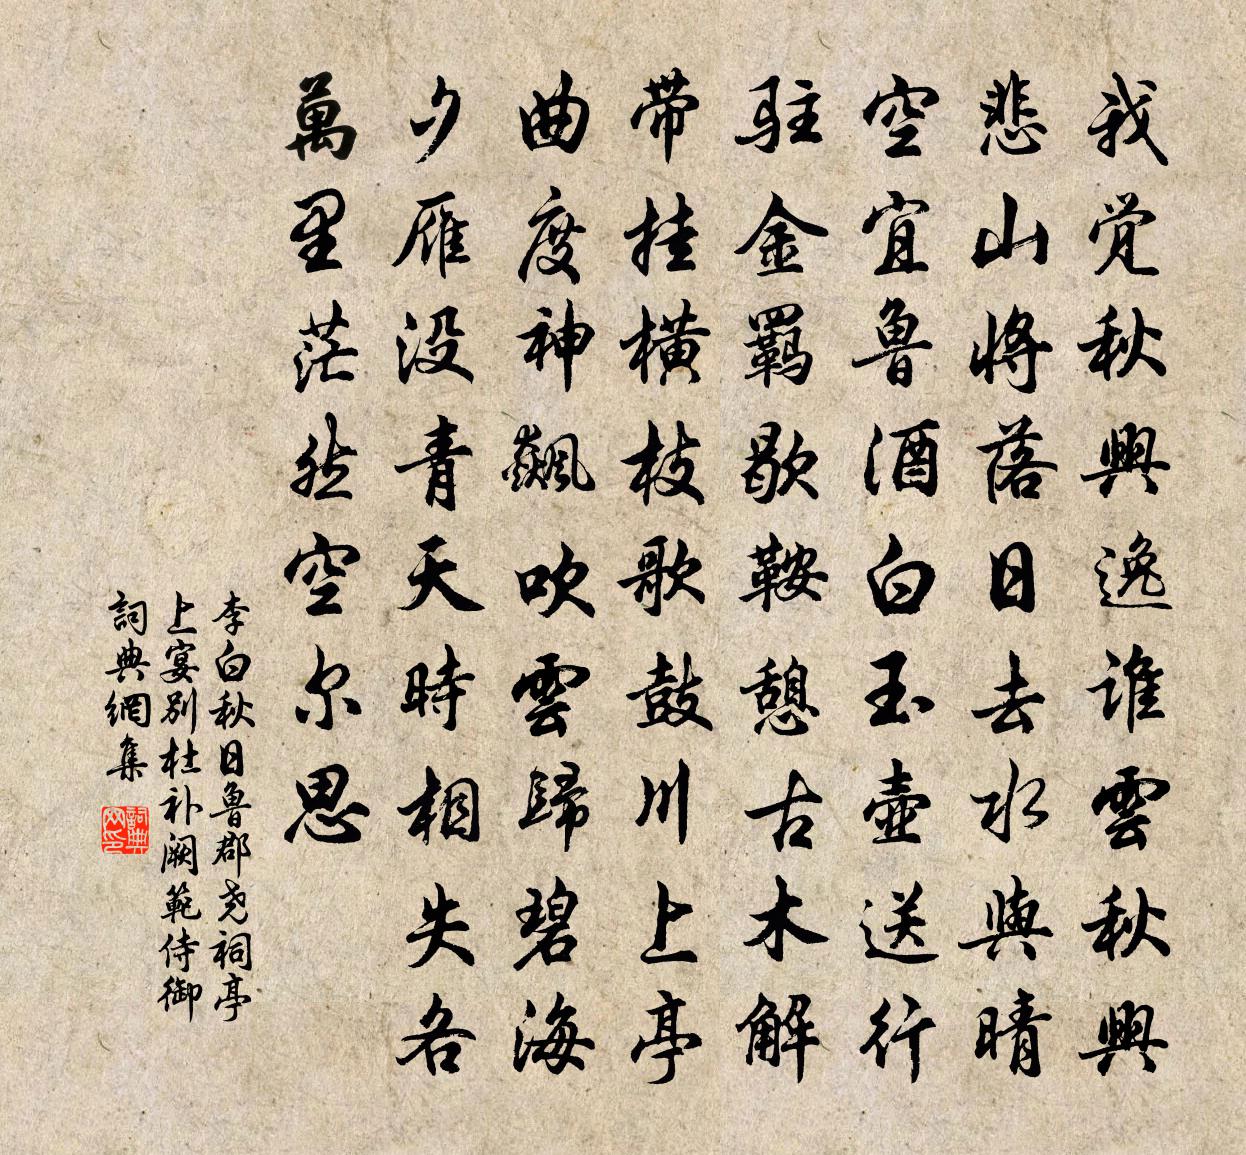 我觉秋興逸谁雲秋興
悲山將落日去水與晴
空宜鲁酒白玉壶送行
驻金羈歇鞍憩古木解
带挂横枝歌鼓川上亭
曲度神飙吹雲歸碧海
夕雁没青天時相失各
萬里茫然空尔思
李白秋日鲁郡尧祠亭
上宴别杜补阙範侍御
詞典網集